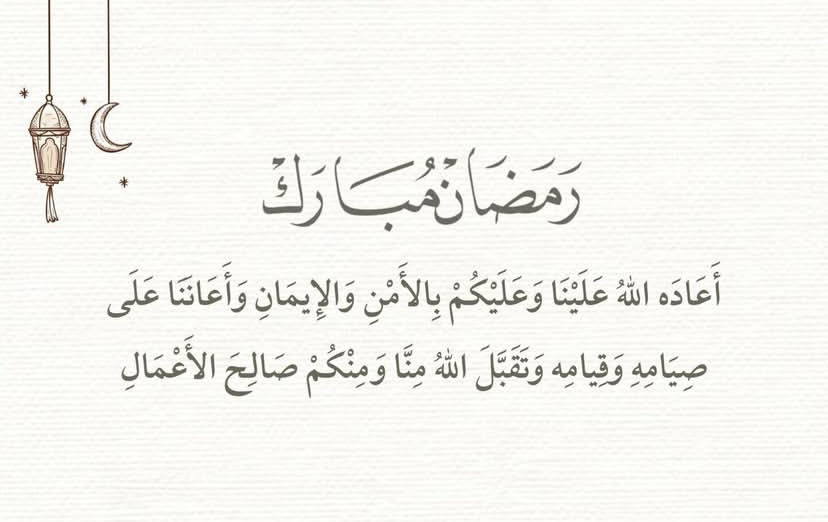 رَمَضَان مُبَارَك
أَعَادَه اللهُ عَلَيْنَا وَعَلَيْكُمْ بِالأَمْنِ وَالإِيمَانِ وَأَعَانَنَا عَلَى
صِيَامِهِ وَقِيامِه وَتَقَبَّلَ اللهُ مِنَّا وَمِنْكُمْ صَالِحَ الأَعْمَالِ